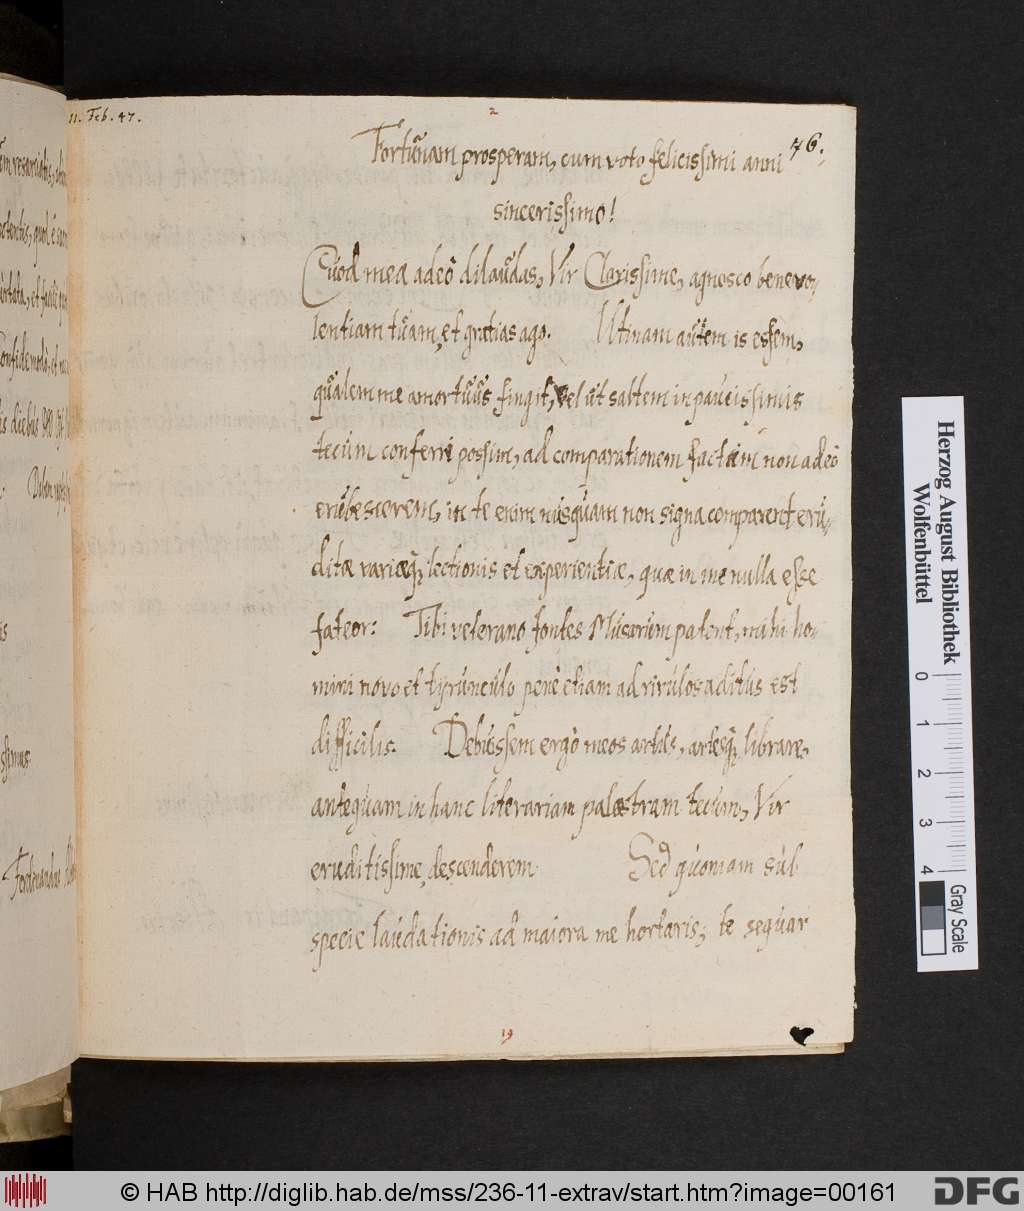 11. Feb. 47.
2
76.
Fortunam prosperam, cum voto felicissimi anni
sincerissimo!
Quod mea adeò dilaudas, Vir Clarissime, agnosco benevo-
lentiam tuam, et gratias ago. Utinam autem is essem,
qualem me amor tuus fingit, vel ut saltem in paucissimis
tecum conferri possim, ad comparationem factam non adeò
erubescerem, in te enim nusquam non signa comparent eru-
ditæ variæq; lectionis et experientiæ, quæ in me nulla esse
fateor: Tibi veterano fontes Musarum patent, mihi ho-
mini novo et tyrunculo penè etiam ad rivulos aditus est
difficilis. Debuissem ergò meos artus, arteq; librare,
antequam in hanc literariam palæstram tecum, Vir
eruditissime, descenderem. Sed quoniam sub
specie laudationis ad maiora me hortaris; te sequar
19
ssimus
Ferdinandus
Herzog August Bibliothek
Wolfenbüttel
0 1 2 3 4
Gray Scale
© HAB http://diglib.hab.de/mss/236-11-extrav/start.htm?image=00161
DFG